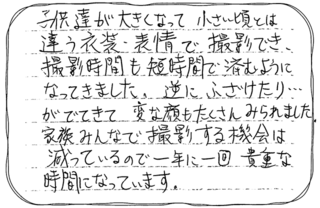 子供達が大きくなって 小さい頃とは
違う衣装・表情で、撮影でき、
撮影時間も短時間で済むように
なってきました。逆にふざけたり…
がでてきて 変な顔もたくさんみられました。
家族みんなで撮影する機会は
減っているので一年に一回 貴重な
時間になっています。